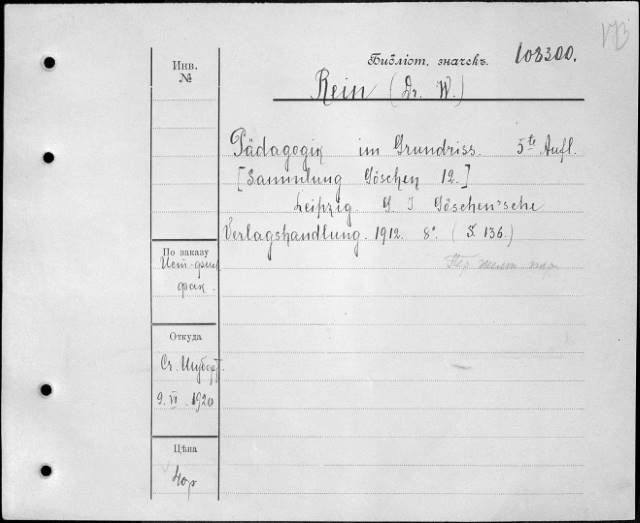 Инв.
№
Библіот. значекъ. 108300.
Rein (Dr. W.)
Pädagogik im Grundriss. 5te Aufl.
[Sammlung Göschen 12.]
Leipzig G. J Göschen'sche
Verlagshandlung. 1912. 8° (S. 136.)
По заказу
Ист-фил
фак.
Откуда
Ст. Шуберт.
9. VI. 1920
Цѣна
40р